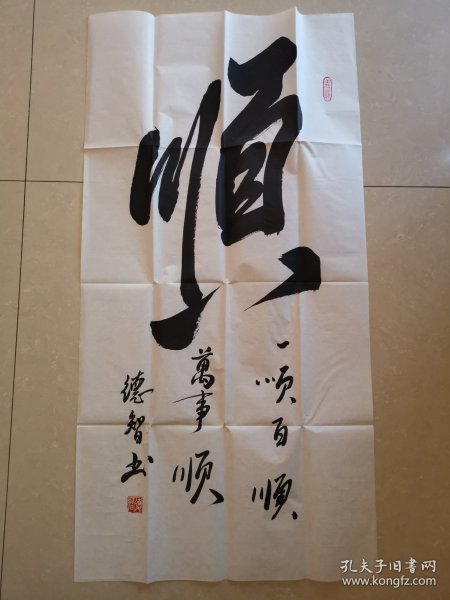 順
一顺百順
萬事順
德智书
孔夫子旧书网
www.kongfz.com